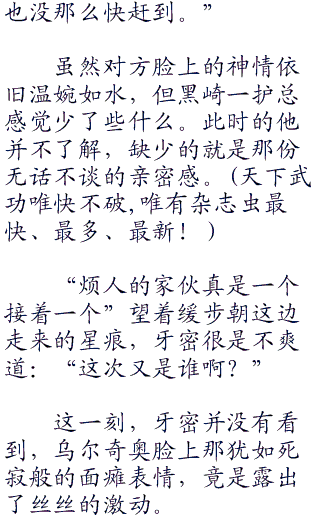 也没那么快赶到。”
虽然对方脸上的神情依
旧温婉如水，但黑崎一护总
感觉少了些什么。此时的他
并不了解，缺少的就是那份
无话不谈的亲密感。(天下武
功唯快不破,唯有杂志虫最
快、最多、最新！)
“烦人的家伙真是一个
接着一个”望着缓步朝这边
走来的星痕，牙密很是不爽
道：“这次又是谁啊？”
这一刻，牙密并没有看
到，乌尔奇奥脸上那犹如死
寂般的面瘫表情，竟是露出
了丝丝的激动。